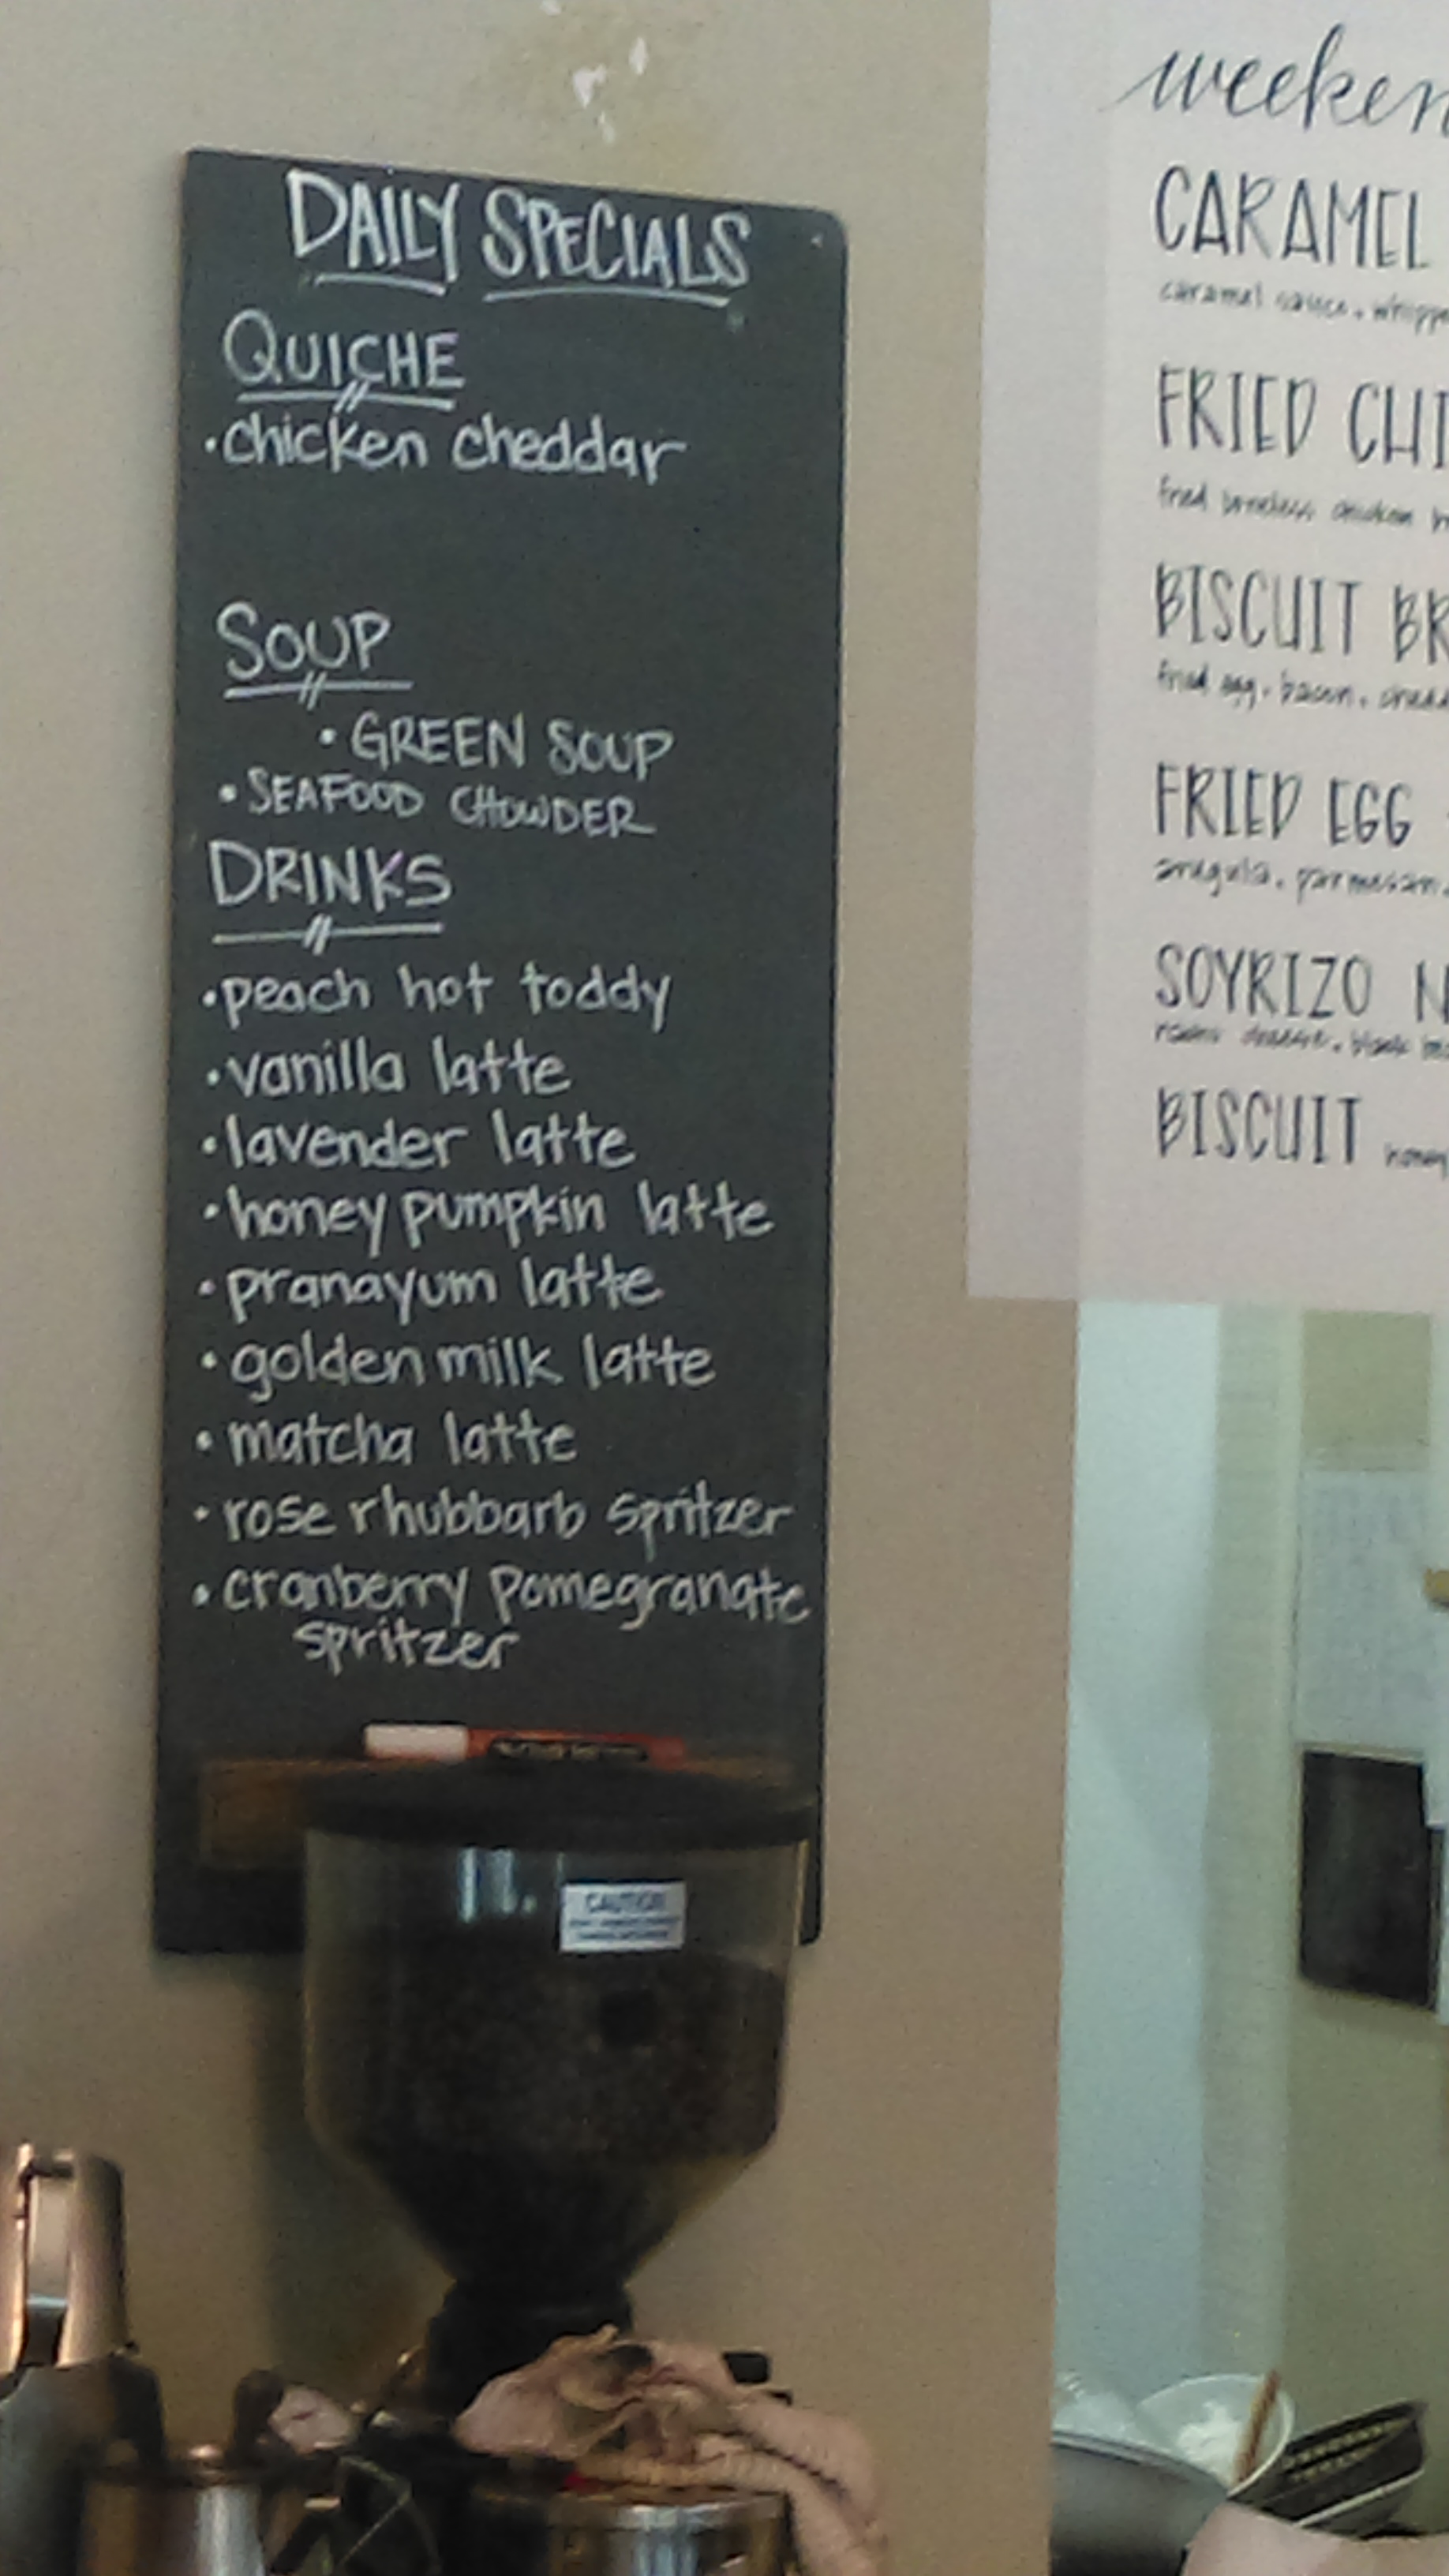 DAILY SPECIALS
QUICHE
•chicken cheddar
SOUP
•GREEN SOUP
•SEAFOOD CHOWDER
DRINKS
•peach hot toddy
•vanilla latte
•lavender latte
•honey pumpkin latte
•pranayum latte
•golden milk latte
•matcha latte
•rose rhubbarb spritzer
•cranberry pomegranate
spritzer
CAUTION
weeken
CARAMEL
caramel sauce, whippe
FRIED CHI
fried boneless chicken
BISCUIT BR
fried egg, bacon, chedd
FRIED EGG
arugula, parmesan,
SOYRIZO N
black
BISCUIT honey